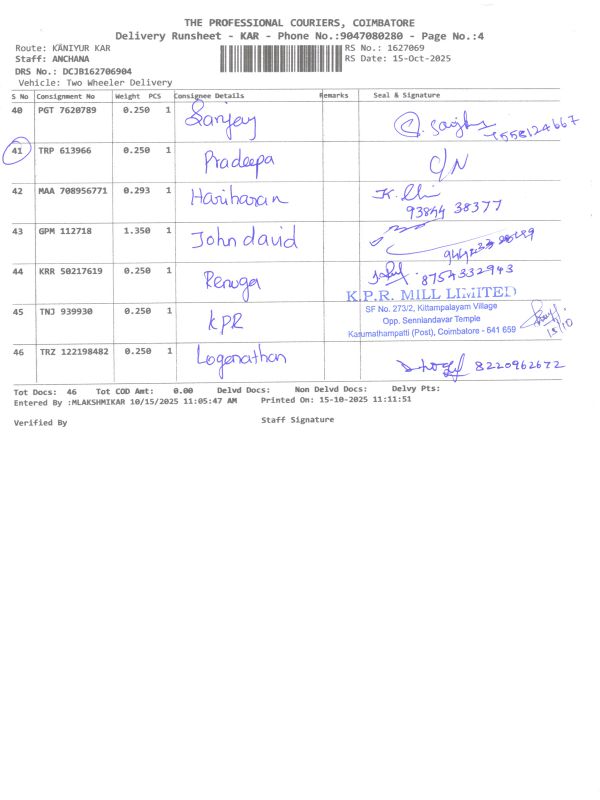 THE PROFESSIONAL COURIERS, COIMBATORE
Delivery Runsheet - KAR - Phone No.:9047080280 - Page No.:4
Route: KANIYUR KAR RS No.: 1627069
Staff: ANCHANA RS Date: 15-Oct-2025
DRS No.: DCJB162706904
Vehicle: Two Wheeler Delivery
S No Consignment No Weight PCS Consignee Details Remarks Seal & Signature
40 PGT 7620789 0.250 1 Sanjay
41 TRP 613966 0.250 1 Pradeepa
42 MAA 708956771 0.293 1 Hariharan
93844 38377
43 GPM 112718 1.350 1 John david
44 KRR 50217619 0.250 1 Renuga 8754332943
K.P.R. MILL LIMITED
45 TNJ 939930 0.250 1 KPR SF No. 273/2, Kittampalayam Village
Opp. Senniandavar Temple
Karumathampatti (Post), Coimbatore - 641 659
15/10
46 TRZ 122198482 0.250 1 Logenathan 8220962672
Tot Docs: 46 Tot COD Amt: 0.00 Delvd Docs: Non Delvd Docs: Delvy Pts:
Entered By :MLAKSHMIKAR 10/15/2025 11:05:47 AM Printed On: 15-10-2025 11:11:51
Verified By Staff Signature